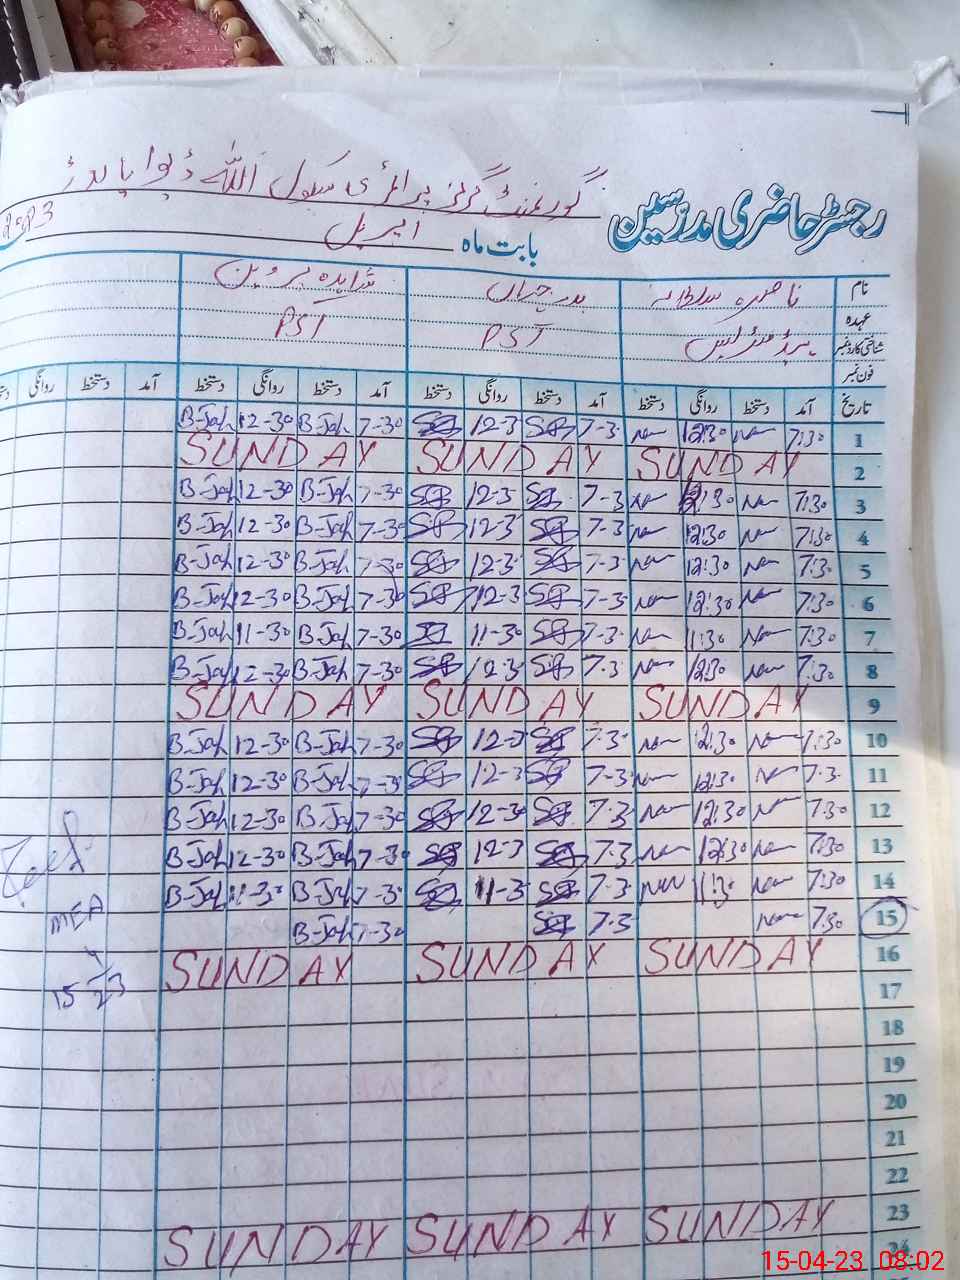 گورنمنٹ گرلز پرائمری سکول اللہ ڈیوایا
رجسٹر حاضری مدرسین
بابت ماہ اپریل 2023
نام ناصرہ سلطانہ بدر جہاں شاہدہ پروین
عہدہ ہیڈ مسٹریس PST PST
شناختی کارڈ نمبر
فون نمبر
تاریخ آمد دستخط روانگی دستخط آمد دستخط روانگی دستخط آمد دستخط روانگی دستخط آمد دستخط روانگی
1 7:30 12:30 7-3 12-3 7-30 B-Jah 12-30 B-Jah
2 SUNDAY SUNDAY SUNDAY
3 7:30 12:30 7-3 12-3 7-30 B-Jah 12-30 B-Jah
4 7:30 12:30 7-3 12-3 7-30 B-Jah 12-30 B-Jah
5 7:30 12:30 7-3 12-3 7-30 B-Jah 12-30 B-Jah
6 7:30 12:30 7-3 12-3 7-30 B-Jah 12-30 B-Jah
7 7:30 11:30 7-3 11-30 7-30 B-Jah 11-30 B-Jah
8 7:30 12:30 7.3 12.3 7-30 B-Jah 12-30 B-Jah
9 SUNDAY SUNDAY SUNDAY
10 7:30 12:30 7.3 12-3 7-30 B-Jah 12-30 B-Jah
11 7.3 12:30 7-3 12-3 7-30 B-Jah 12-30 B-Jah
12 7:30 12:30 7.3 12-30 7-30 B-Jah 12-30 B-Jah
13 7:30 12:30 7.3 12-3 7-30 B-Jah 12-30 B-Jah
14 7:30 11:3 7.3 11-3 7-30 B-Jah 11-30 B-Jah
15 7:30 7.3 7-30 B-Jah
MEA
16 SUNDAY SUNDAY SUNDAY
15 23
17
18
19
20
21
22
23 SUNDAY SUNDAY SUNDAY
24
15-04-23 08:02